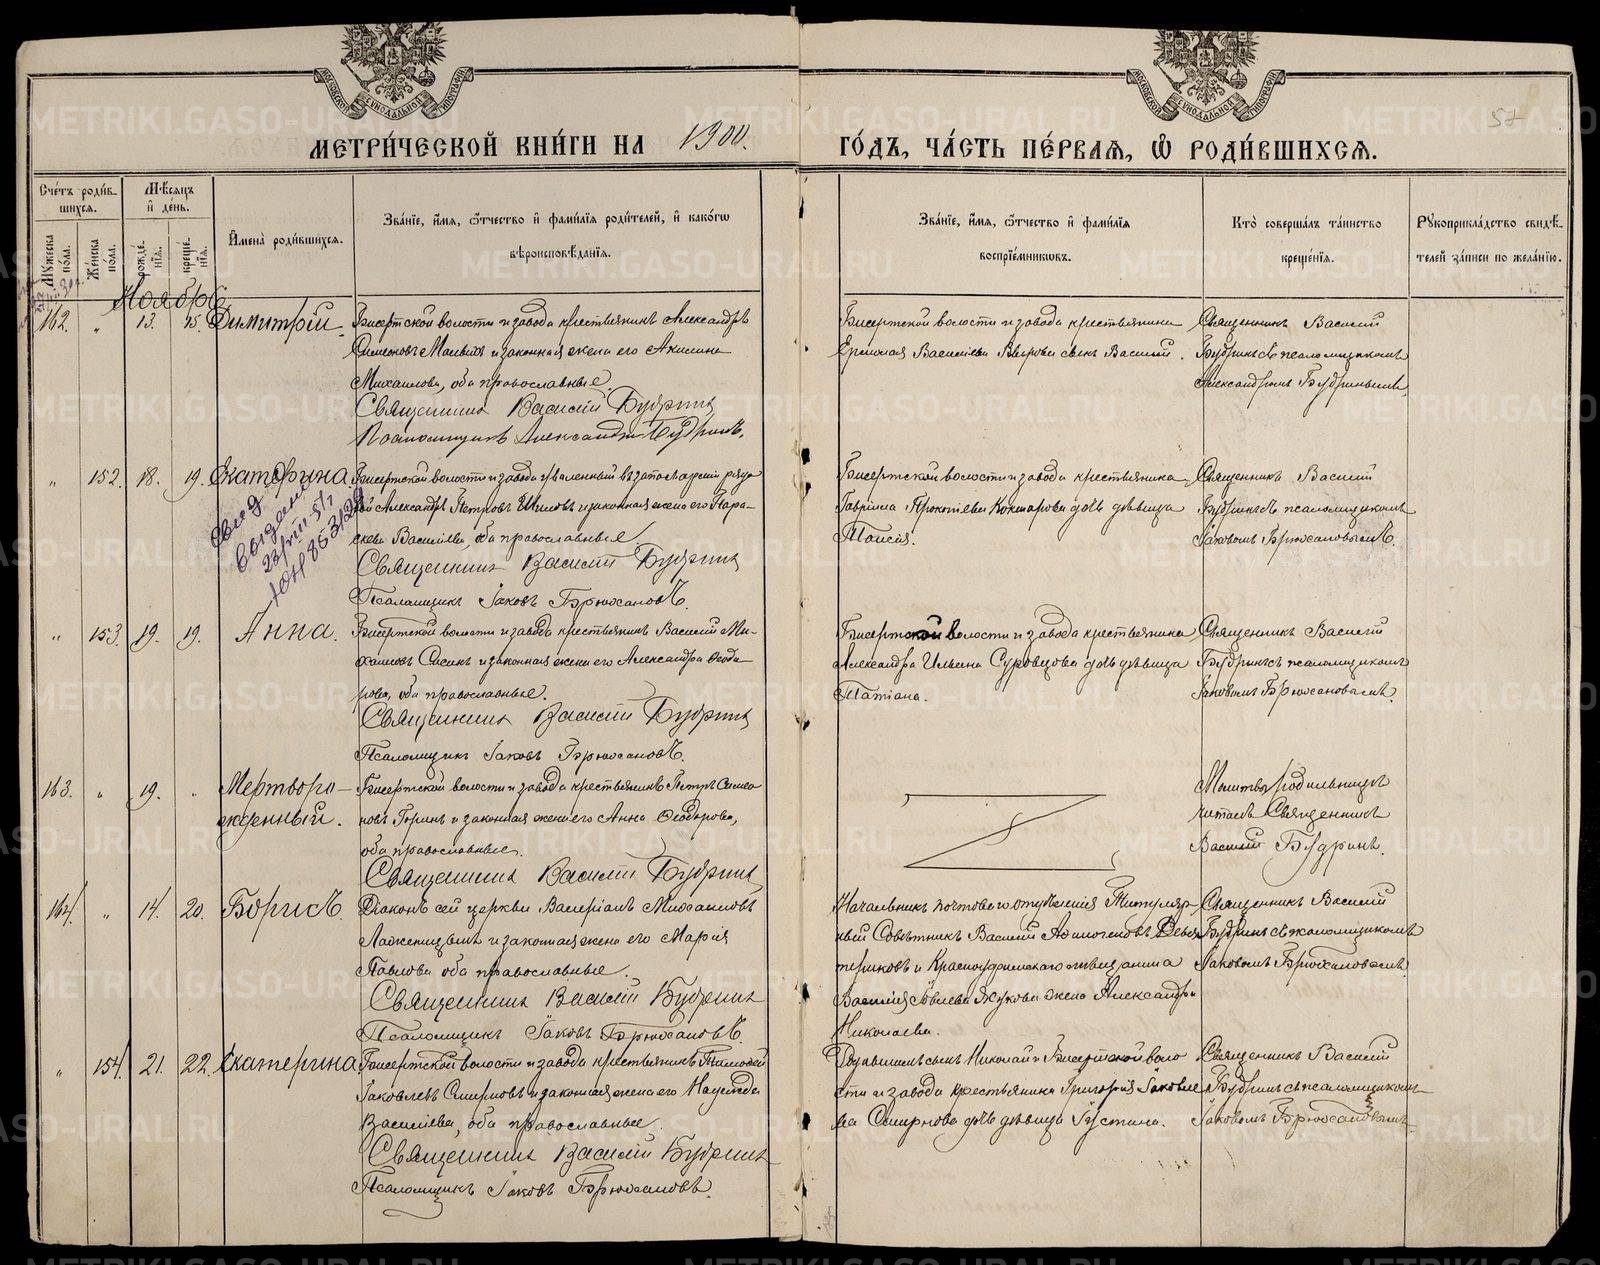 МОСКОВСКОЙ СѴНОДАЛЬНОЙ ТИПОГРАФІИ
МОСКОВСКОЙ СѴНОДАЛЬНОЙ ТИПОГРАФІИ
57
МЕТРИ́ЧЕСКОЙ КНИ́ГИ НА 1900. ГО́ДЪ, ЧА́СТЬ ПЕ́РВАЯ, Ѽ РОДИ́ВШИХСЯ.
Сче́тъ роди́вшихся.
Мѣсяцъ и де́нь.
Мꙋжеска по́ла.
Же́нска по́ла.
рожде́нїя.
креще́нїя.
Имена̀ роди́вшихся.
Зва́нїе, и́мя, ѻ́тчество и фами́лїя роди́телей, и како́гѡ
вѣроисповѣ́данїя.
Зва́нїе, и́мя, ѻ́тчество и фами́лїя
воспрїе́мникѡвъ.
Кто̀ соверша́лъ та́инство
креще́нїя.
Рꙋкоприкла́дство свидѣ́телей за́писи по жела́нїю.
Ноябрь
162. " 13. 15. Димитрій.
Бисертской волости и завода крестьянинъ Александръ
Симоновъ и законная жена его Акилина
Михаилова, оба православные.
Священникъ Василій Будринъ
Псаломщикъ Александръ Будринъ.
Бисертской волости и завода крестьянина
Василіева сынъ Василій.
Священникъ Василій
Будринъ съ псаломщикомъ
Александромъ Будринымъ.
" 152. 18. 19. Екатерина
Бисертской волости и завода уволенный въ запасъ арміи рядовой Александръ Петровъ Шиловъ и законная жена его Параскева Василіева, оба православные
Священникъ Василій Будринъ
Псаломщикъ Іаковъ Брюхановъ.
Свид
выдано
23/VIII-51 г
ЮН 853129
Бисертской волости и завода крестьянина
Гавріила Прокопіева дочь дѣвица
Таисія.
Священникъ Василій
Будринъ съ псаломщикомъ
Іаковомъ Брюхановымъ.
" 153. 19. 19. Анна.
Бисертской волости и завода крестьянинъ Василій Михаиловъ и законная жена его Александра Ѳеодорова, оба православные.
Священникъ Василій Будринъ
Псаломщикъ Іаковъ Брюхановъ.
Бисертской волости и завода крестьянина
Александра Ильина Суровцова дочь дѣвица
Татіана.
Священникъ Василій
Будринъ съ псаломщикомъ
Іаковомъ Брюхановымъ
163. " 19. " Мертворожденный.
Бисертской волости и завода крестьянинъ Петръ Симеоновъ и законная жена его Анна Ѳеодорова,
оба православные.
Священникъ Василій Будринъ
Молитву родильницѣ
читалъ Священникъ
Василій Будринъ.
164. " 14. 20. Борисъ.
Діаконъ сей церкви Валеріанъ Михаиловъ
и законная жена его Марія
Павлова оба православные.
Священникъ Василій Будринъ
Псаломщикъ Іаковъ Брюхановъ.
Начальникъ почтоваго отдѣленія Титулярный Совѣтникъ Василій
и Красноуфимскаго мѣщанина
Василія Іовлева Жукова жена Александра
Николаева.
Священникъ Василій
Будринъ съ псаломщикомъ
Іаковомъ Брюхановымъ.
" 154. 21. 22. Екатерина
Бисертской волости и завода крестьянинъ Тимоѳей
Іаковлевъ Смирновъ и законная жена его Надежда
Василіева, оба православные.
Священникъ Василій Будринъ
Псаломщикъ Іаковъ Брюхановъ.
сынъ Николай и Бисертской волости и завода крестьянина Григорія Іаковлева Смирнова дочь дѣвица Іустина.
Священникъ Василій
Будринъ съ псаломщикомъ
Іаковомъ Брюхановымъ.
METRIKI.GASO-URAL.RU